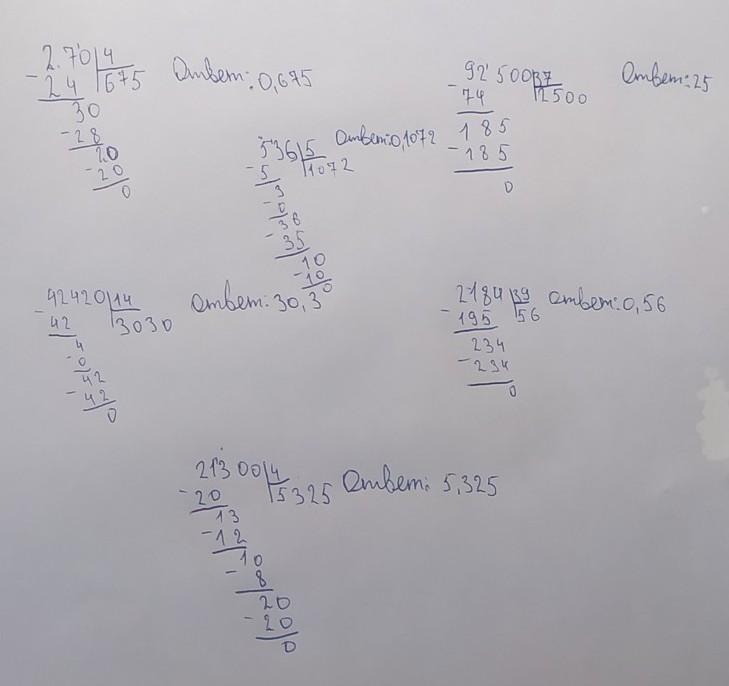 2.70 | 4
- 24 | 675 Ответ: 0,675
30
- 28
20
- 20
0
536 | 5 Ответ: 0,1072
- 5 | 1072
3
- 0
36
- 35
10
- 10
0
92500 | 37 Ответ: 25
- 74 | 2500
185
- 185
0
42420 | 14 Ответ: 30,3
- 42 | 3030
4
- 0
42
- 42
0
2184 | 39 Ответ: 0,56
- 195 | 56
234
- 234
0
21300 | 4
- 20 | 5325 Ответ: 5,325
13
- 12
10
- 8
20
- 20
0